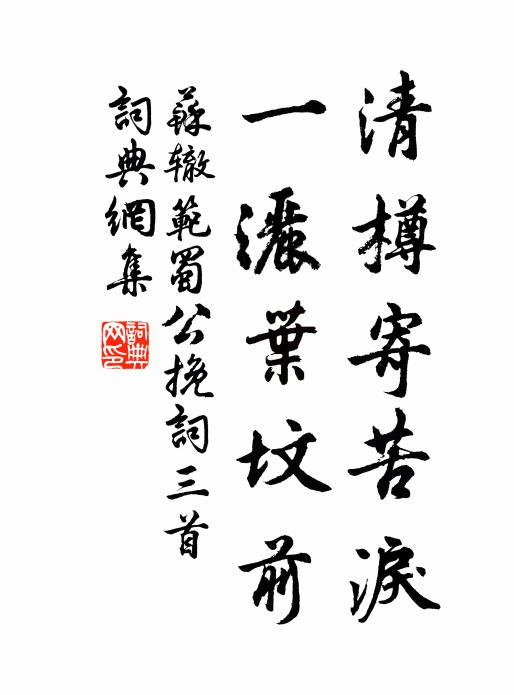 清樽寄苦淚
一灑葉墳前
蘇轍範蜀公挽詞三首
詞典網集
詞典網印